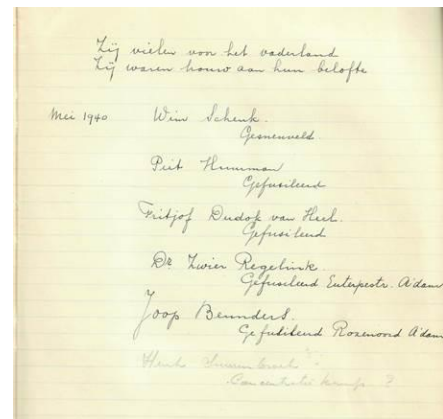 Zij vielen voor het vaderland
Zij waren trouw aan hun belofte
Mei 1940 Wim Schenk.
Gesneuveld
Piet
Gefusileerd
Fritjof Dudok van Heel.
Gefusileerd
Dr. Zwier Regelink.
Gefusileerd Euterpestr. A'dam
Joop
Gefusileerd Rozenoord A'dam
Henk
Concentratie kamp ?